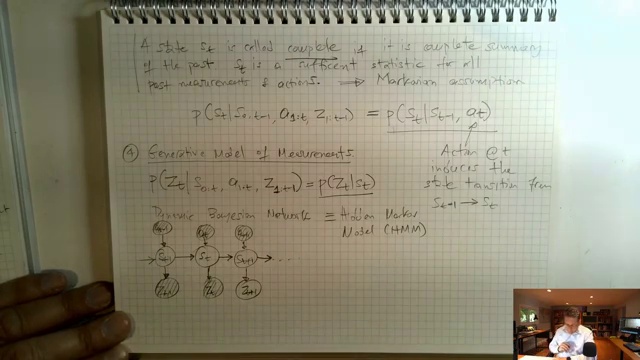 A state St is called complete if it is complete summary
of the past St is a sufficient statistic for all
past measurements & actions. ⟹ Markovian assumption
p(St|S0:t-1, a1:t, Z1:t-1) = p(St|St-1, at)
④ Generative Model of Measurements.
Action @ t
induces the
state transition from
St-1 → St
p(Zt|S0:t, a1:t, Z1:t-1) = p(Zt|St)
Dynamic Bayesian Network ≡ Hidden Markov
Model (HMM)
at-1 at at+1
St-1 St St+1 ...
Zt-1 Zt Zt+1